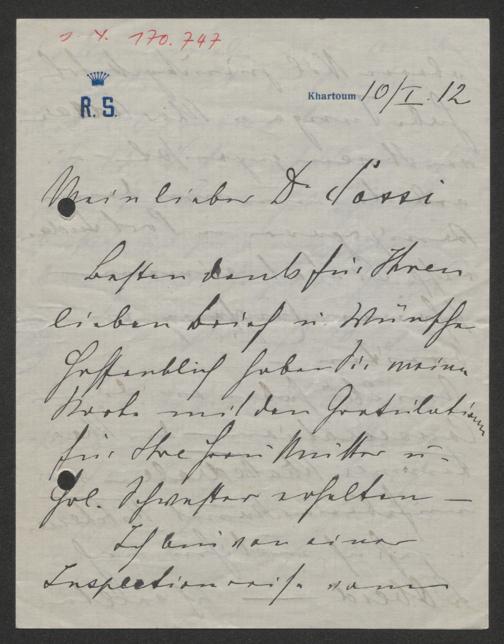 170.747
R. S.
Khartoum 10/I. 12
Mein lieber Dr Possi
besten dank für Ihren
lieben Brief u. Wünsche
Hoffentlich haben Sie meine
Karte mit den Gratulationen
für Ihre Frau Mutter u.
Frl. Schwester erhalten —
Ich bin von einer
Inspectionsreise vom